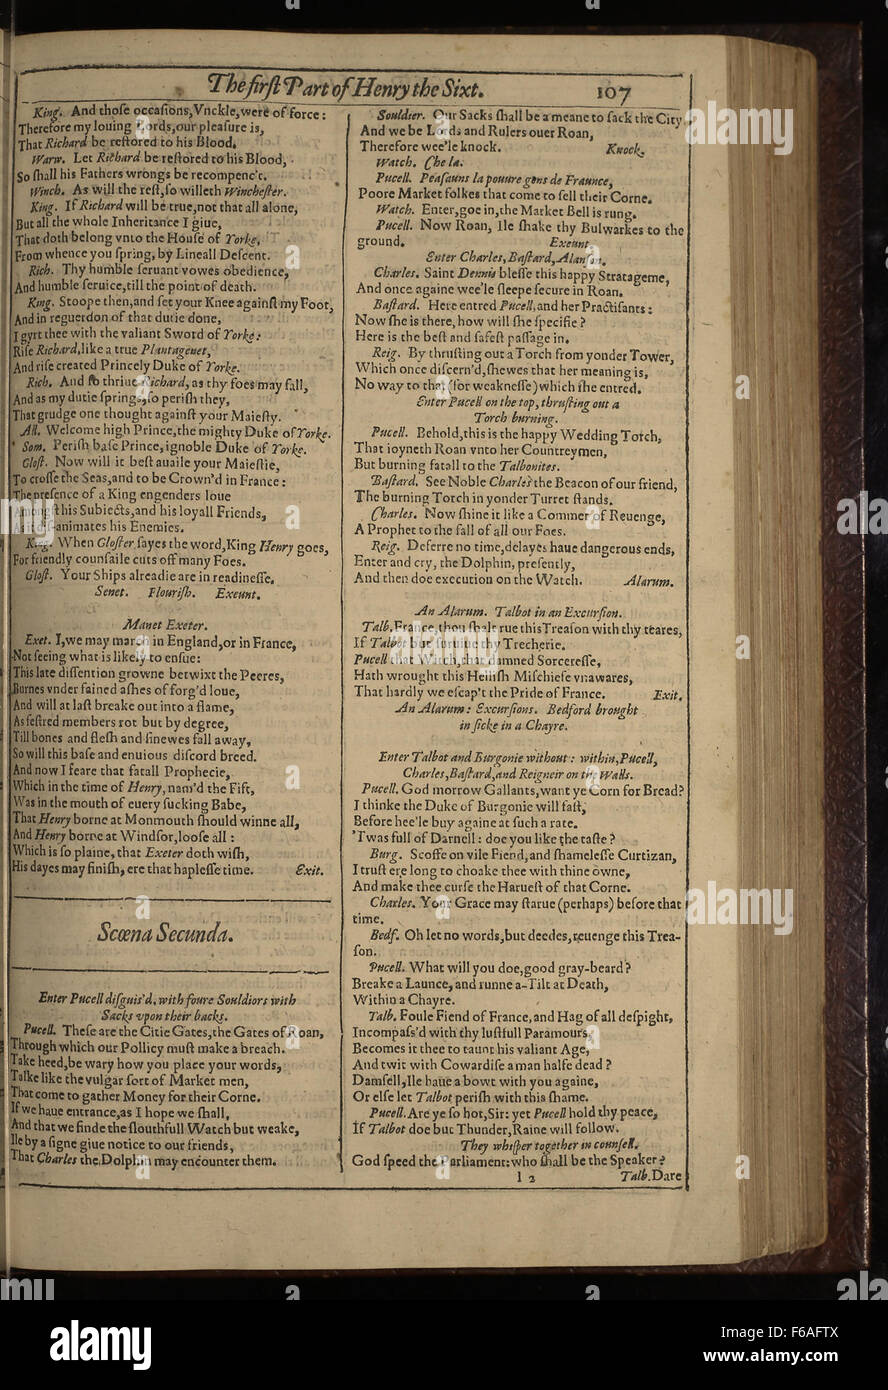 The firſt Part of Henry the Sixt. 107
King. And thoſe occaſions, Vnckle, were of force:
Therefore my louing Lords, our pleaſure is,
That Richard be reſtored to his Blood.
Warw. Let Richard be reſtored to his Blood,
So ſhall his Fathers wrongs be recompenc't.
Winch. As will the reſt, ſo willeth Wincheſter.
King. If Richard will be true, not that all alone,
But all the whole Inheritance I giue,
That doth belong vnto the Houſe of Yorke,
From whence you ſpring, by Lineall Deſcent.
Rich. Thy humble ſeruant vowes obedience,
And humble ſeruice, till the point of death.
King. Stoope then, and ſet your Knee againſt my Foot,
And in reguerdon of that dutie done,
I gyrt thee with the valiant Sword of Yorke:
Riſe Richard, like a true Plantagenet,
And riſe created Princely Duke of Yorke.
Rich. And ſo thriue Richard, as thy foes may fall,
And as my dutie ſprings, ſo periſh they,
That grudge one thought againſt your Maieſty.
All. Welcome high Prince, the mighty Duke of Yorke.
Som. Periſh baſe Prince, ignoble Duke of Yorke.
Gloſt. Now will it beſt auaile your Maieſtie,
To croſſe the Seas, and to be Crown'd in France:
The preſence of a King engenders loue
Amongſt his Subiects, and his loyall Friends,
As it diſ-animates his Enemies.
King. When Gloſter ſayes the word, King Henry goes,
For friendly counſaile cuts off many Foes.
Gloſt. Your Ships alreadie are in readineſſe.
Senet. Flouriſh. Exeunt.
Manet Exeter.
Exet. I, we may march in England, or in France,
Not ſeeing what is likely to enſue:
This late diſſention growne betwixt the Peeres,
Burnes vnder fained aſhes of forg'd loue,
And will at laſt breake out into a flame,
As feſtred members rot but by degree,
Till bones and fleſh and ſinewes fall away,
So will this baſe and enuious diſcord breed.
And now I feare that fatall Prophecie,
Which in the time of Henry, nam'd the Fift,
Was in the mouth of euery ſucking Babe,
That Henry borne at Monmouth ſhould winne all,
And Henry borne at Windſor, looſe all:
Which is ſo plaine, that Exeter doth wiſh,
His dayes may finiſh, ere that hapleſſe time. Exit.
Scœna Secunda.
Enter Pucell diſguis'd, with foure Souldiors with
Sacks vpon their backs.
Pucell. Theſe are the Citie Gates, the Gates of Roan,
Through which our Pollicy muſt make a breach.
Take heed, be wary how you place your words,
Talke like the vulgar ſort of Market men,
That come to gather Money for their Corne.
If we haue entrance, as I hope we ſhall,
And that we finde the ſlouthfull Watch but weake,
Ile by a ſigne giue notice to our friends,
That Charles the Dolphin may encounter them.
Souldier. Our Sacks ſhall be a meane to ſack the City,
And we be Lords and Rulers ouer Roan,
Therefore wee'le knock. Knock.
Watch. Che la.
Pucell. Peaſauns la pouure gens de Fraunce,
Poore Market folkes that come to ſell their Corne.
Watch. Enter, goe in, the Market Bell is rung.
Pucell. Now Roan, Ile ſhake thy Bulwarkes to the
ground. Exeunt.
Enter Charles, Baſtard, Alanſon.
Charles. Saint Dennis bleſſe this happy Stratageme,
And once againe wee'le ſleepe ſecure in Roan.
Baſtard. Here entred Pucell, and her Practiſants:
Now ſhe is there, how will ſhe ſpecifie?
Here is the beſt and ſafeſt paſſage in.
Reig. By thruſting out a Torch from yonder Tower,
Which once diſcern'd, ſhewes that her meaning is,
No way to that (for weakneſſe) which ſhe entred.
Enter Pucell on the top, thruſting out a
Torch burning.
Pucell. Behold, this is the happy Wedding Torch,
That ioyneth Roan vnto her Countreymen,
But burning fatall to the Talbonites.
Baſtard. See Noble Charles the Beacon of our friend,
The burning Torch in yonder Turret ſtands.
Charles. Now ſhine it like a Commet of Reuenge,
A Prophet to the fall of all our Foes.
Reig. Deferre no time, delayes haue dangerous ends,
Enter and cry, the Dolphin, preſently,
And then doe execution on the Watch. Alarum.
An Alarum. Talbot in an Excurſion.
Talb. France, thou ſhalt rue this Treaſon with thy teares,
If Talbot but ſuruiue thy Trecherie.
Pucell that Witch, that damned Sorcereſſe,
Hath wrought this Helliſh Miſchiefe vnawares,
That hardly we eſcap't the Pride of France. Exit.
An Alarum: Excurſions. Bedford brought
in ſicke in a Chayre.
Enter Talbot and Burgonie without: within, Pucell,
Charles, Baſtard, and Reigneir on the Walls.
Pucell. God morrow Gallants, want ye Corn for Bread?
I thinke the Duke of Burgonie will faſt,
Before hee'le buy againe at ſuch a rate.
'Twas full of Darnell: doe you like the taſte?
Burg. Scoffe on vile Fiend, and ſhameleſſe Curtizan,
I truſt ere long to choake thee with thine owne,
And make thee curſe the Harueſt of that Corne.
Charles. Your Grace may ſtarue (perhaps) before that
time.
Bedf. Oh let no words, but deedes, reuenge this Trea-
ſon.
Pucell. What will you doe, good gray-beard?
Breake a Launce, and runne a-Tilt at Death,
Within a Chayre.
Talb. Foule Fiend of France, and Hag of all deſpight,
Incompaſs'd with thy luſtfull Paramours,
Becomes it thee to taunt his valiant Age,
And twit with Cowardiſe a man halfe dead?
Damſell, Ile haue a bowt with you againe,
Or elſe let Talbot periſh with this ſhame.
Pucell. Are ye ſo hot, Sir: yet Pucell hold thy peace,
If Talbot doe but Thunder, Raine will follow.
They whiſper together in counſell.
God ſpeed the Parliament: who ſhall be the Speaker?
l 2 Talb. Dare
alamy
Image ID: F6AFTX
www.alamy.com